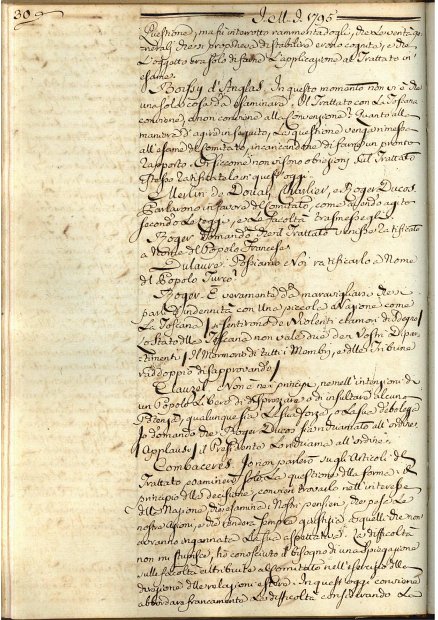 309
J. M. J. 1795
Questione, ma fu interrotto rammentandogli, che le verità ge
nerali, che si proponeva di stabilire erano cognite, e che
l'oggetto era solo di farne l'applicazione al Trattato in
esame.
Boissy d'Anglas. In questo momento non vi è che
una sola cosa da esaminare. Il Trattato con la Toscana
conviene, o non conviene alla Convenzione? Quanto alla
maniera d'agire in seguito, la questione venga rimessa
all'esame del Comitato, incaricandone di farne un pronto
rapporto. Or siccome non vi sono obiezioni sul Trattato
stesso ratificatelo in quest'oggi.
Merlin de Douai, Charlier, e Roger Ducos
Parlavono in favore del Comitato come avendo agito
secondo le Legge, e le facoltà trasmessegli.
Roger domandò che il Trattato venisse ratificato
a Nome del Popolo Francese
Dulaure. Possiamo Noi ratificarlo a Nome
del Popolo Turco?
Roger È veramente da maravigliare che si
parli d'indennità con una piccola Nazione come
la Toscana | si sentirono de violenti clamori di Negro |
lo Stato della Toscana non vale due de' Vostri Dipar
timenti | Il Mormorio di tutti i Membri, e delle Tribune
raddoppiò disapprovando |
Clauzel. Non è nei principi, ne nell'intenzioni di
un Popolo Libero di disprezzare o di insultare alcuna
Potenza, qualunque sia la sua forza, o la sua debolezza
Io domando che Roger Ducos sia richiamato all'ordine.
| Applausi | il Presidente lo richiama all'ordine.
Combaceres. Io non parlerò sugli Articoli del
Trattato esaminerò solo la questione della forma. Il
principio della decisione, convien trovarlo nell'interesse
della Nazione, che esamina i Nostri pensieri, che pesa le
nostre azioni, e che renderà sempre giustizia a quelli che non
avranno ingannata la sua aspettativa. La difficoltà
non mi stupisce, ho conosciuto il bisogno di una spiegazione
sulle facoltà attribuite al Comitato nell'esercizio della
direzione delle relazioni estere. In quest'oggi conviene
abbordare francamente la difficoltà considerando la